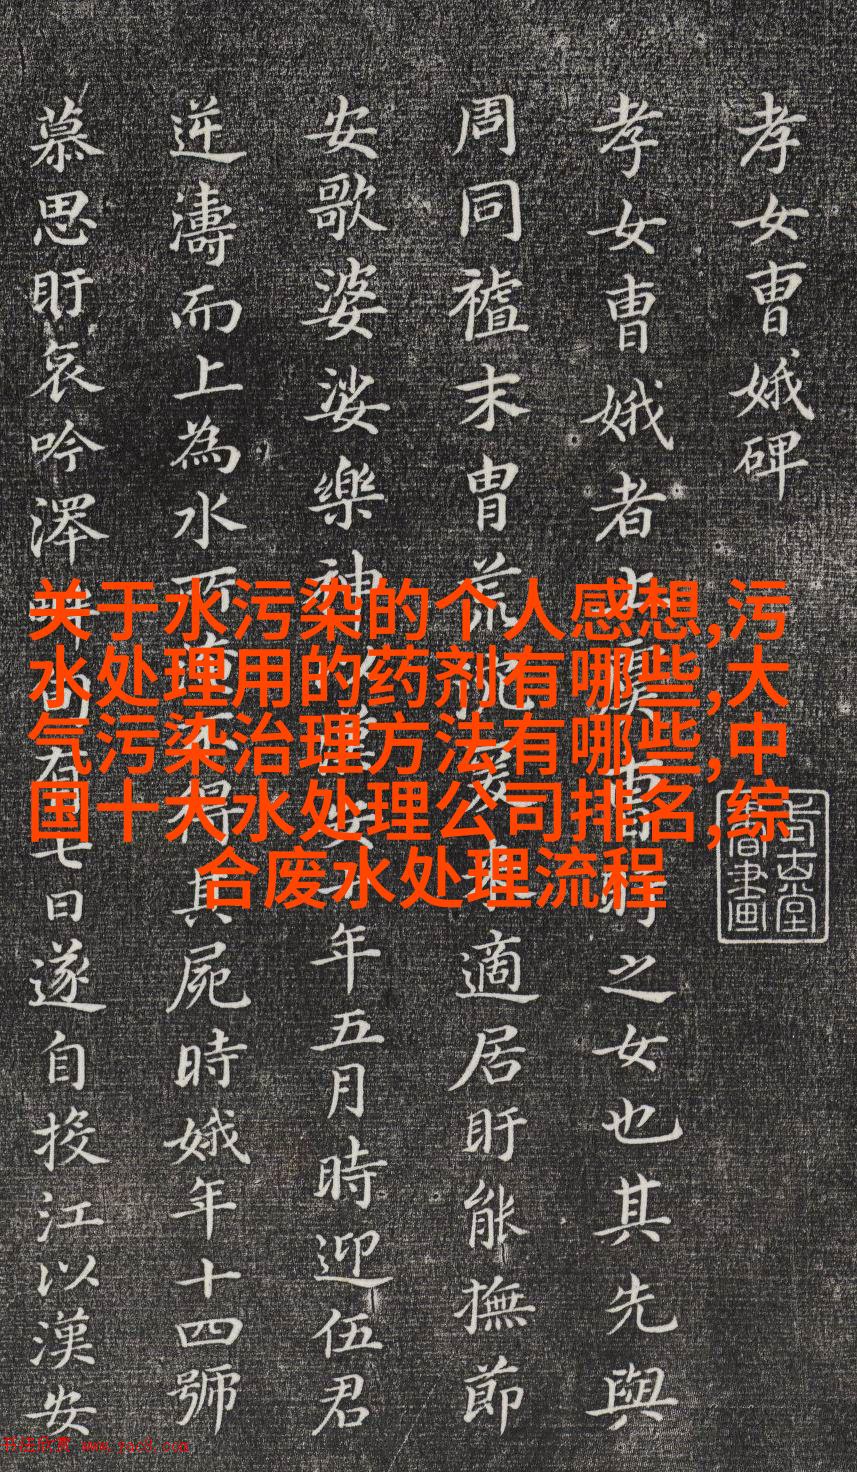 孝女曹娥碑
孝女曹娥者上虞曹盱之女也其先與
周同禮末胄荒沉爰來適居盱能撫節
安歌婆娑樂神以漢安二年五月時迎伍君
逆濤而上為水所淹不得其屍時娥年十四號
慕思盱哀吟澤畔旬有七日遂自投江以漢安
关于水污染的个人感想,污
水处理用的药剂有哪些,大
气污染治理方法有哪些,中
国十大水处理公司排名,综
合废水处理流程
书法欣赏 www.yac8.com